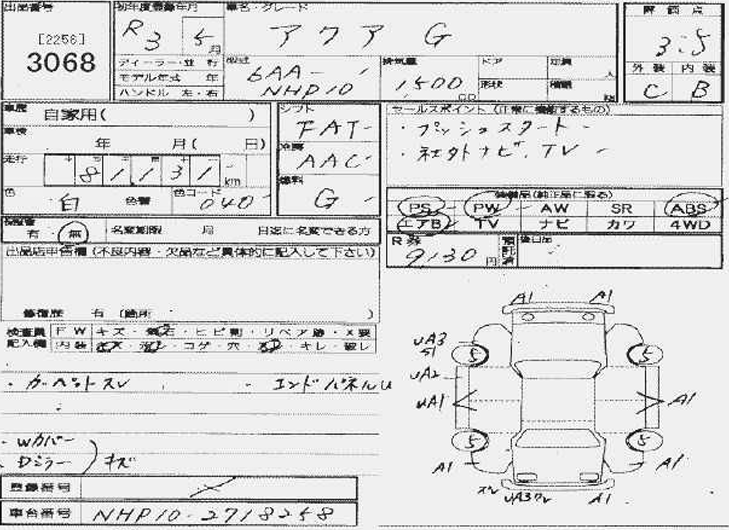 出品番号
[2256]
3068
初年度登録年月
R3 5月
車名・グレード
アクア G
ディーラー・並行
モデル年式 年
ハンドル 左・右
型式
6AA-
NHP10
排気量
1500
CC
ドア
形状
定員
人
積載
kg
評価点
3.5
外装 内装
C B
車歴
自家用( )
車検
年 月( 日)
走行
81131km
色
白
色替
色コード
040
シフト
FAT
冷房
AAC
燃料
G
セールスポイント (正常に機能するもの)
・プッシュスタート
・社外ナビ.TV
装備品(純正品に限る)
PS PW AW SR ABS
エアB TV ナビ カワ 4WD
有・無
名変期限 月 日迄に名変できる方
R券
9130円
預託済
後日品
出品店申告欄 (不良内容・欠品など具体的に記入して下さい)
修復歴 有 (箇所 )
検査員
記入欄
FW キズ・飛石・ヒビ割・リペア跡・X要
内装 コゲ・穴 キレ・破レ
・カーペットスレ
・エンドパネルU
・Wカバー
Dミラー
キズ
登録番号
車台番号 NHP10-2718258
A1 A1
UA3
S1
5 5
UA2
UA1
A1
5 5
A1 A1
UA3
A1